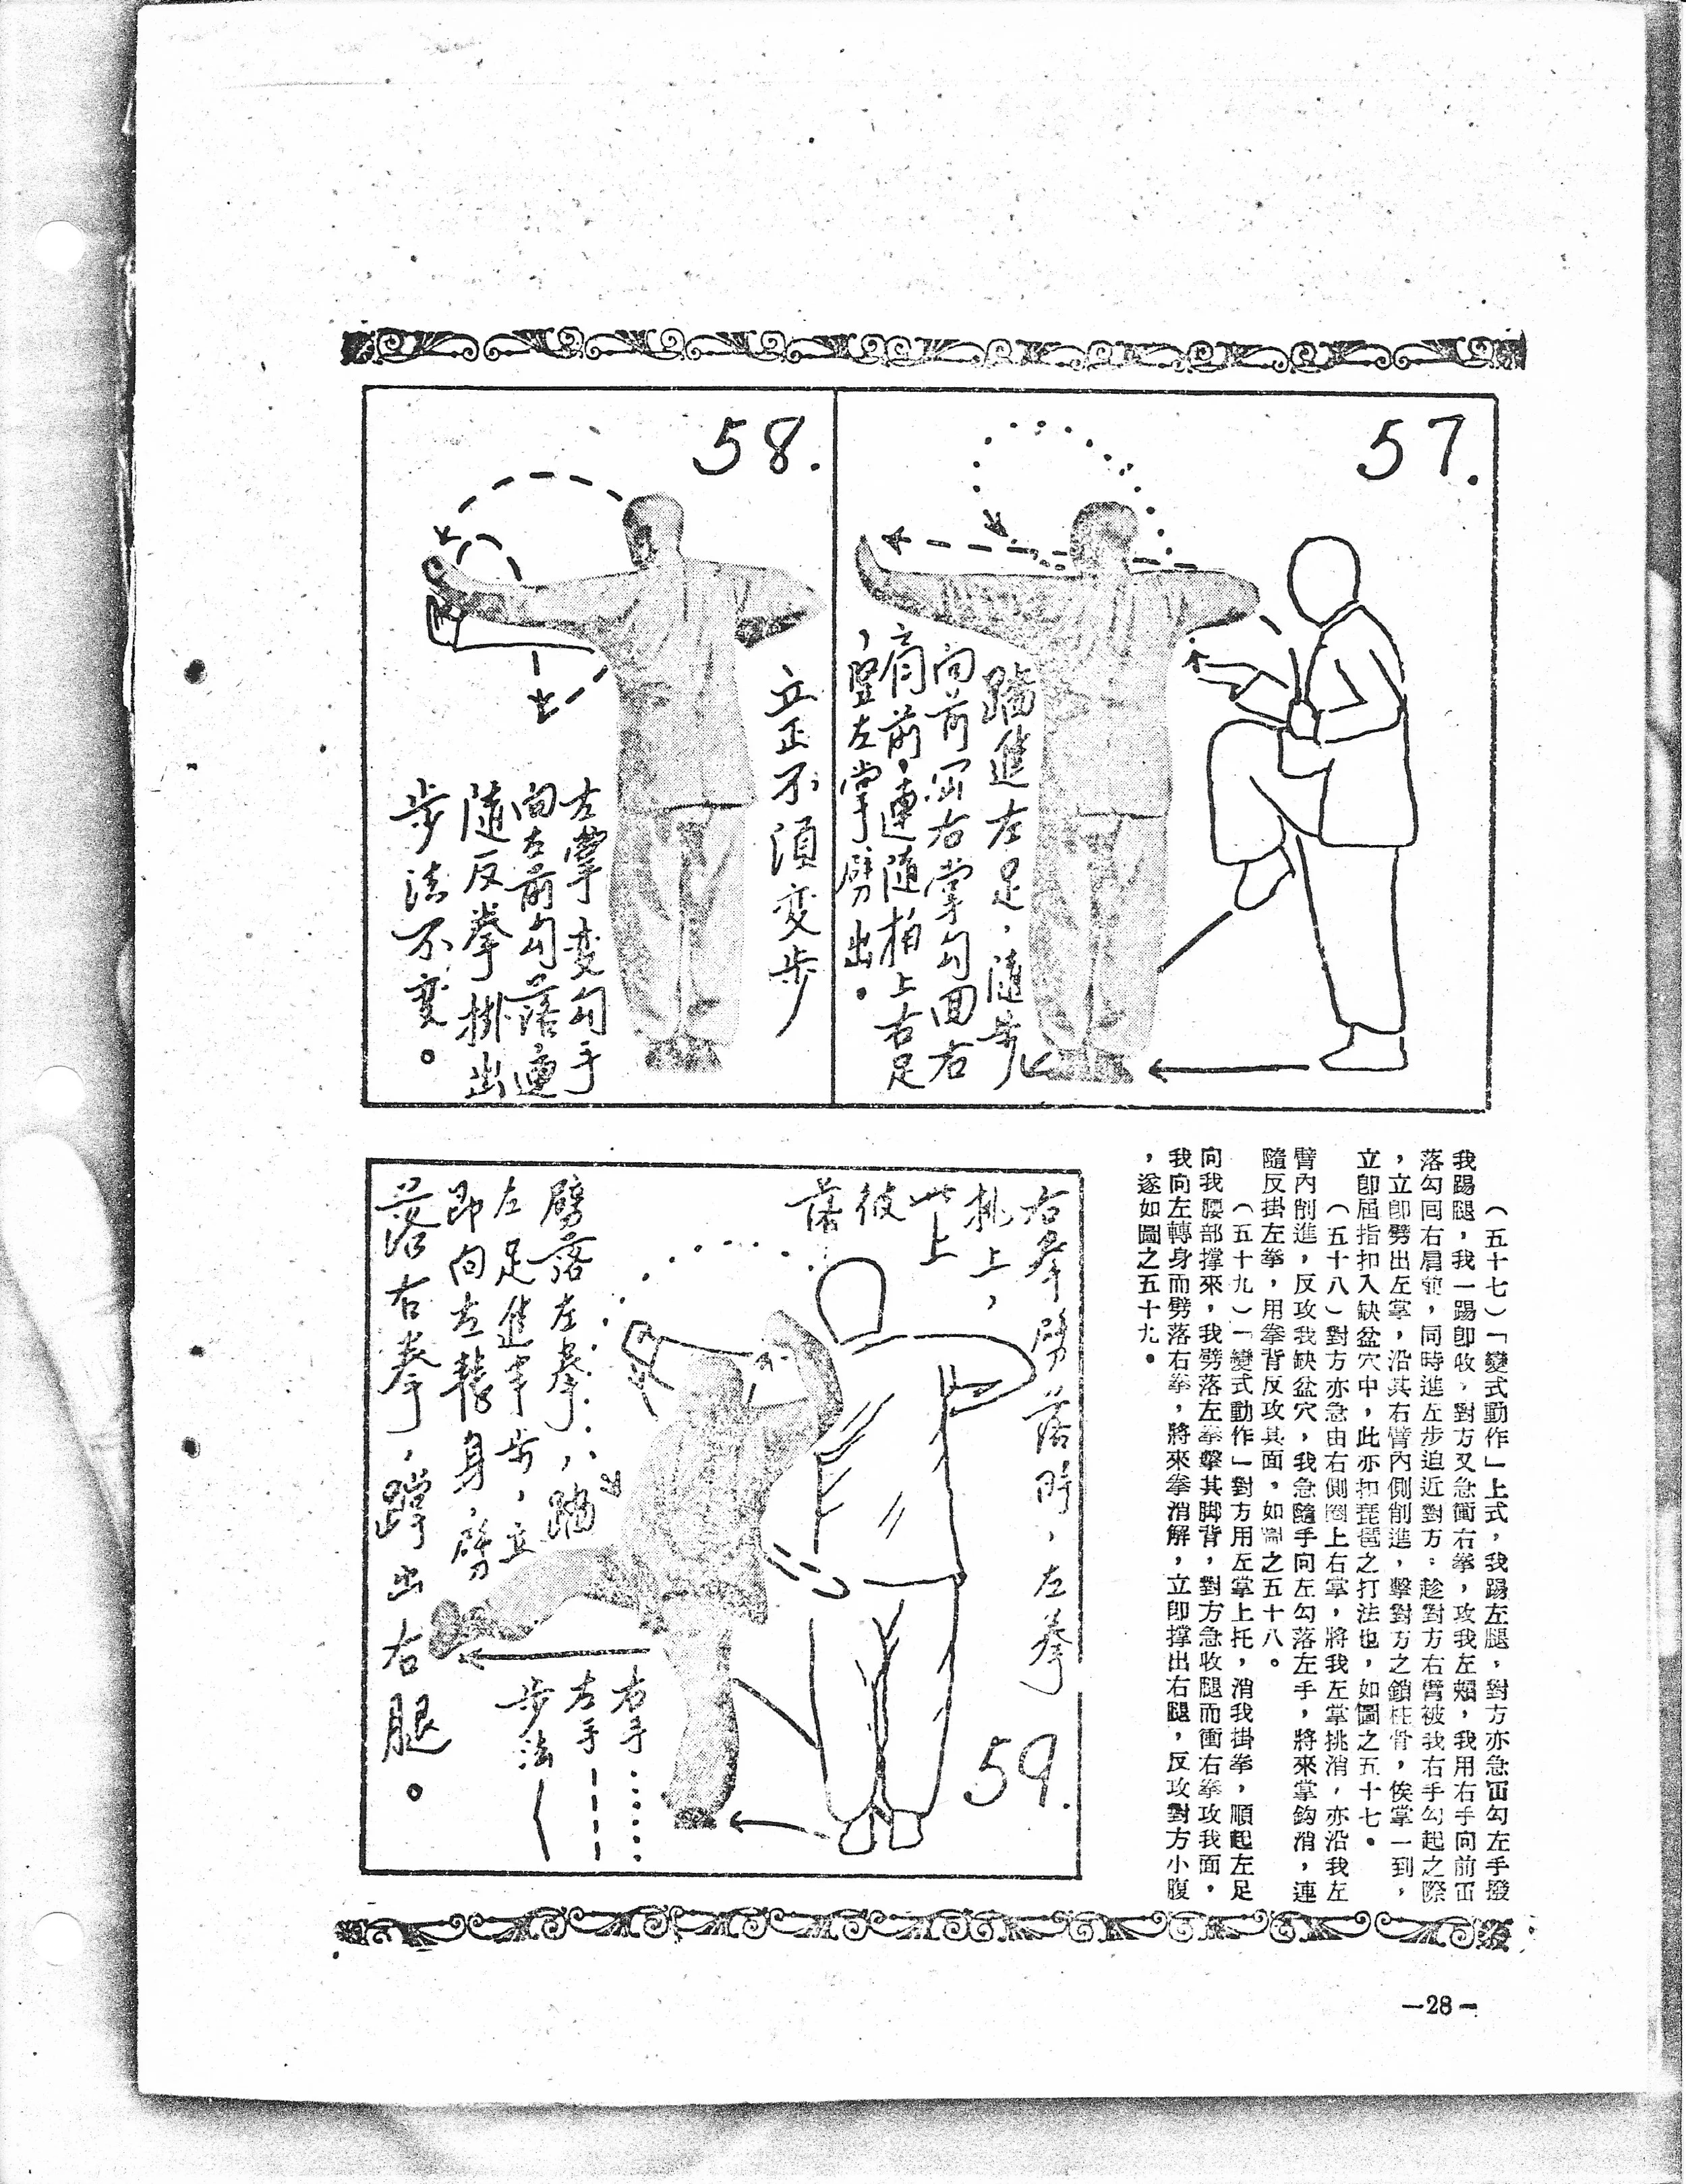 57.
踏進左足，隨步
向前冚右掌勾回右
肩前，連隨拍上右足
，竪左掌劈出。
58.
立正不須变步
左掌变勾手
向左前勾落連
隨反拳掛出
步法不变。
（五十七）「變式動作」上式，我踢左腿，對方亦急冚勾左手撥
我踢腿，我一踢卽收，對方又急衝右拳，攻我左頰，我用右手向前冚
落勾囘右肩前，同時進左步追近對方：趁對方右臂被我右手勾起之際
，立卽劈出左掌，沿其右臂內側削進，擊對方之鎖柱骨，俟掌一到，
立卽屈指扣入缺盆穴中，此亦扣琵琶之打法也，如圖之五十七。
（五十八）對方亦急由右側圈上右掌，將我左掌挑消，亦沿我左
臂內削進，反攻我缺盆穴，我急隨手向左勾落左手，將來掌鈎消，連
隨反掛左拳，用拳背反攻其面，如圖之五十八。
（五十九）「變式動作」對方用左掌上托，消我掛拳，順起左足
向我腰部撑來，我劈落左拳擊其脚背，對方急收腿而衝右拳攻我面，
我向左轉身而劈落右拳，將來拳消解，立卽撑出右腿，反攻對方小腹
，遂如圖之五十九。
59.
右拳劈落時，左拳
挑上，
此上
彼
落
劈落左拳，踏
左足進半步，立
即向左轉身，劈
落右拳，蹬出右腿。
右手
左手
步法
—28—